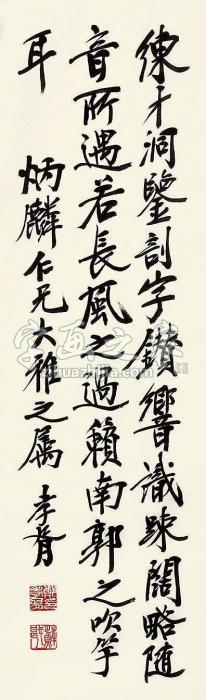 練才洞鑒剖字鑽響識疎闊略隨
音所遇若長風之過籟南郭之吹竽
耳
炳麟仁兄大雅之属 孝胥